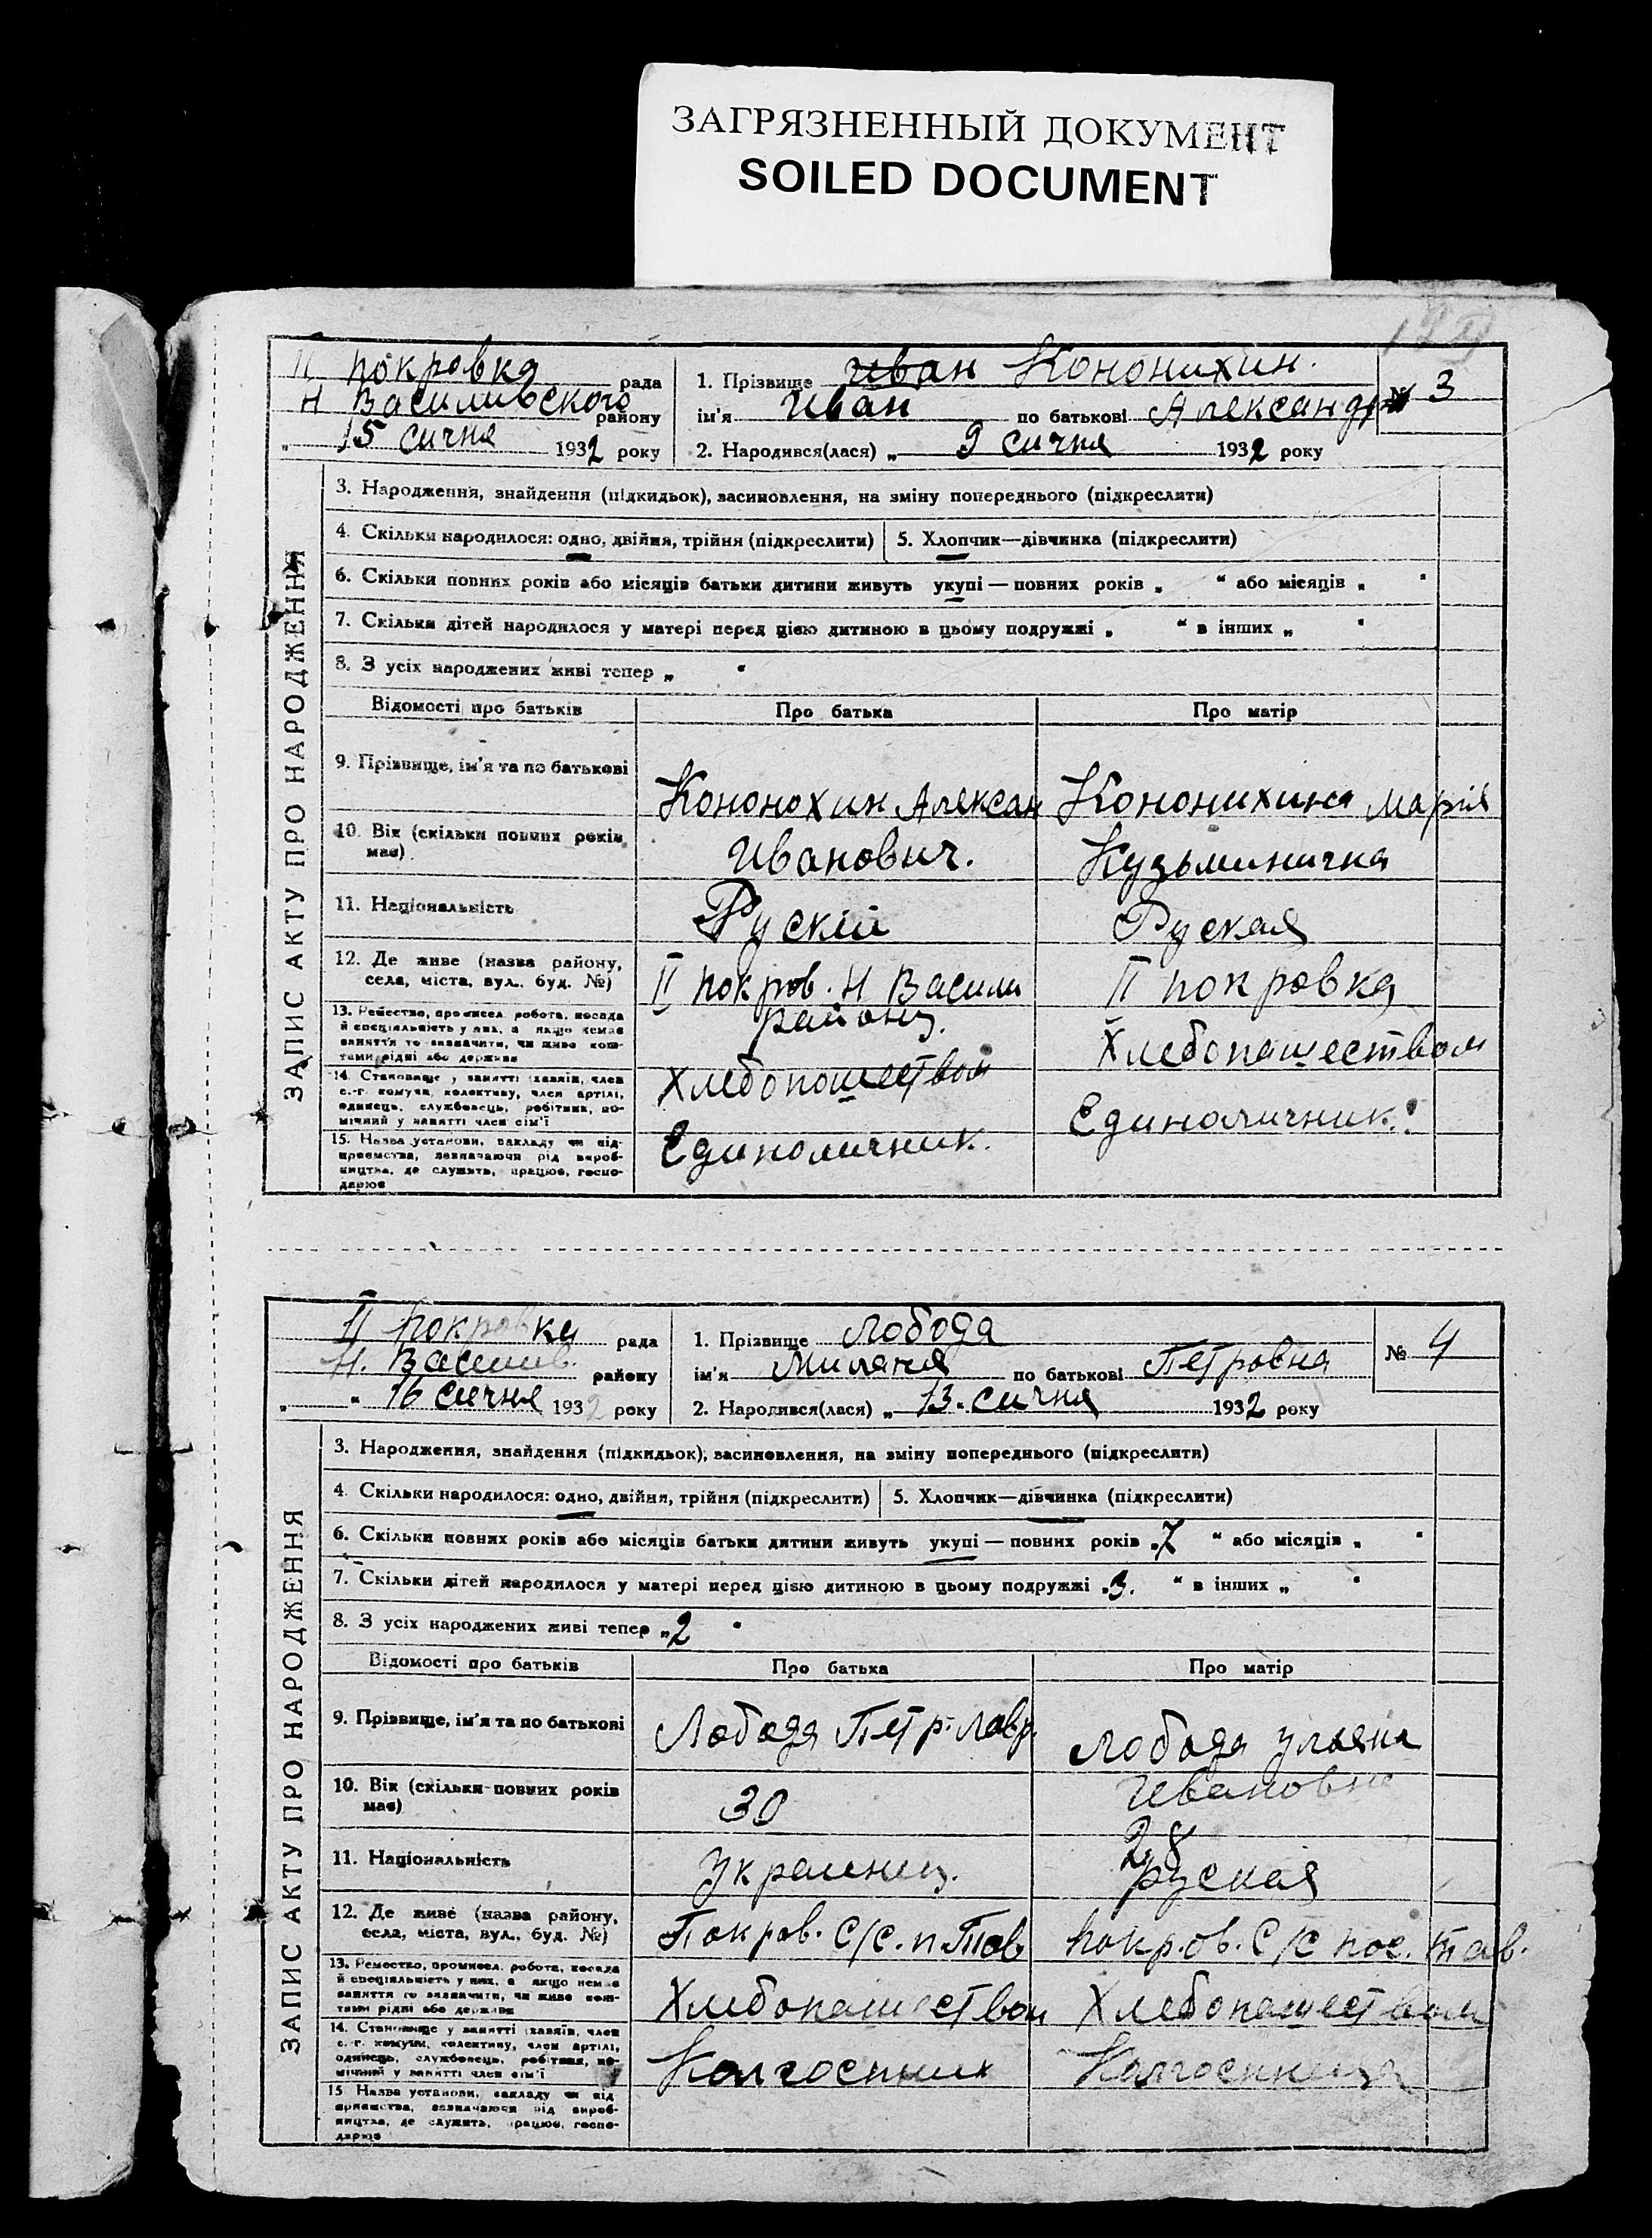 ЗАГРЯЗНЕННЫЙ ДОКУМЕНТ
SOILED DOCUMENT
II покровка рада
Н Василивского району
15 сичня 1932 року
1. Прізвище Иван Кононихин.
ім'я Иван по батькові Александр
№ 3
2. Народився(лася) „ 9 сичня 1932 року
ЗАПИС АКТУ ПРО НАРОДЖЕННЯ
3. Народження, знайдення (підкидьок), засиновлення, на зміну попереднього (підкреслити)
4. Скільки народилося: одно, двійня, трійня (підкреслити)
5. Хлопчик—дівчинка (підкреслити)
6. Скільки повних років або місяців батьки дитини живуть укупі — повних років „ “ або місяців „ “
7. Скільки дітей народилося у матері перед цією дитиною в цьому подружжі „ “ в інших „ “
8. З усіх народжених живі тепер „ “
Відомості про батьків
Про батька
Про матір
9. Прізвище, ім'я та по батькові
Кононохин Алексан
Кононихина Мария
10. Вік (скільки повних років має)
Иванович.
Кузьминична
11. Національність
Руский
Руская
12. Де живе (назва району,
села, міста, вул., буд. №)
II покров. Н Васили
району.
II покровка
13. Ремество, промисел, робота, посада
й спеціальність у них, а якщо немає
заняття то зазначити, чи живе кош-
тами рідні або держави
Хлебопашеством
Хлебопашеством
14. Становище у занятті (хазяїн, член
с.-г. комуни, колективу, член артілі,
одинець, службовець, робітник, по-
мічний у занятті член сім'ї
Единоличник.
Единоличник.
15. Назва установи, закладу чи під-
приємства, зазначаючи рід вироб-
ництва, де служить, працює, госпо-
дарює
II покровка рада
Н. Василив. району
„ 16 сичня 1932 року
1. Прізвище Лобода
ім'я Миланя по батькові Петровна
№ 4
2. Народився(лася) „ 13. сичня 1932 року
ЗАПИС АКТУ ПРО НАРОДЖЕННЯ
3. Народження, знайдення (підкидьок), засиновлення, на зміну попереднього (підкреслити)
4. Скільки народилося: одно, двійня, трійня (підкреслити)
5. Хлопчик—дівчинка (підкреслити)
6. Скільки повних років або місяців батьки дитини живуть укупі — повних років „7 “ або місяців „ “
7. Скільки дітей народилося у матері перед цією дитиною в цьому подружжі „3. “ в інших „ “
8. З усіх народжених живі тепер „2 “
Відомості про батьків
Про батька
Про матір
9. Прізвище, ім'я та по батькові
Лобода Петр. Лавр.
Лобода Ульяна
Ивановна
10. Вік (скільки повних років має)
30
28
11. Національність
Украинец.
руская
12. Де живе (назва району,
села, міста, вул., буд. №)
Покров. С/С. п. Тав
покров. С/С пос. Тав.
13. Ремество, промисел, робота, посада
й спеціальність у них, а якщо немає
заняття то зазначити, чи живе кош-
тами рідні або держави
Хлебопашеством
Хлебопашеством
14. Становище у занятті (хазяїн, член
с.-г. комуни, колективу, член артілі,
одинець, службовець, робітник, по-
мічний у занятті член сім'ї
Колгоспник
Колгоспница
15 Назва установи, закладу чи під
приємства, зазначаючи рід вироб-
ництва, де служить, працює, госпо-
дарює